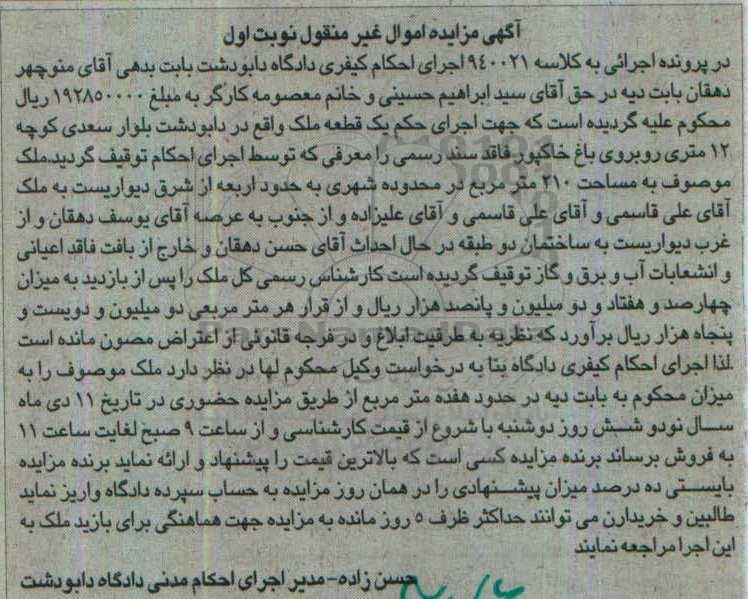 آگهی مزایده اموال غیر منقول نوبت اول
در پرونده اجرائی به کلاسه ۹۴۰۰۲۱ اجرای احکام کیفری دادگاه دابودشت بابت بدهی آقای منوچهر
دهقان بابت دیه در حق آقای سید ابراهیم حسینی و خانم معصومه کارگر به مبلغ ۱۹۲۸۵۰۰۰۰ ریال
محکوم علیه گردیده است که جهت اجرای حکم یک قطعه ملک واقع در دابودشت بلوار سعدی کوچه
۱۲ متری روبروی باغ خاکپور فاقد سند رسمی را معرفی که توسط اجرای احکام توقیف گردید.ملک
موصوف به مساحت ۲۱۰ متر مربع در محدوده شهری به حدود اربعه از شرق دیواریست به ملک
آقای علی قاسمی و آقای علی قاسمی و آقای علیزاده و از جنوب به عرصه آقای یوسف دهقان و از
غرب دیواریست به ساختمان دو طبقه در حال احداث آقای حسن دهقان و خارج از بافت فاقد اعیانی
و انشعابات آب و برق و گاز توقیف گردیده است کارشناس رسمی کل ملک را پس از بازدید به میزان
چهارصد و هفتاد و دو میلیون و پانصد هزار ریال و از قرار هر متر مربعی دو میلیون و دویست و
پنجاه هزار ریال برآورد که نظریه به طرفیت ابلاغ و در فرجه قانونی از اعتراض مصون مانده است
.لذا اجرای احکام کیفری دادگاه بنا به درخواست وکیل محکوم لها در نظر دارد ملک موصوف را به
میزان محکوم به بابت دیه در حدود هفده متر مربع از طریق مزایده حضوری در تاریخ ۱۱ دی ماه
سال نودو شش روز دوشنبه با شروع از قیمت کارشناسی و از ساعت ۹ صبح لغایت ساعت ۱۱
به فروش برساند برنده مزایده کسی است که بالاترین قیمت را پیشنهاد و ارائه نماید برنده مزایده
بایستی ده درصد میزان پیشنهادی را در همان روز مزایده به حساب سپرده دادگاه واریز نماید
طالبین و خریدارن می توانند حداکثر ظرف ۵ روز مانده به مزایده جهت هماهنگی برای بازید ملک به
این اجرا مراجعه نمایند
حسن زاده-مدیر اجرای احکام مدنی دادگاه دابودشت